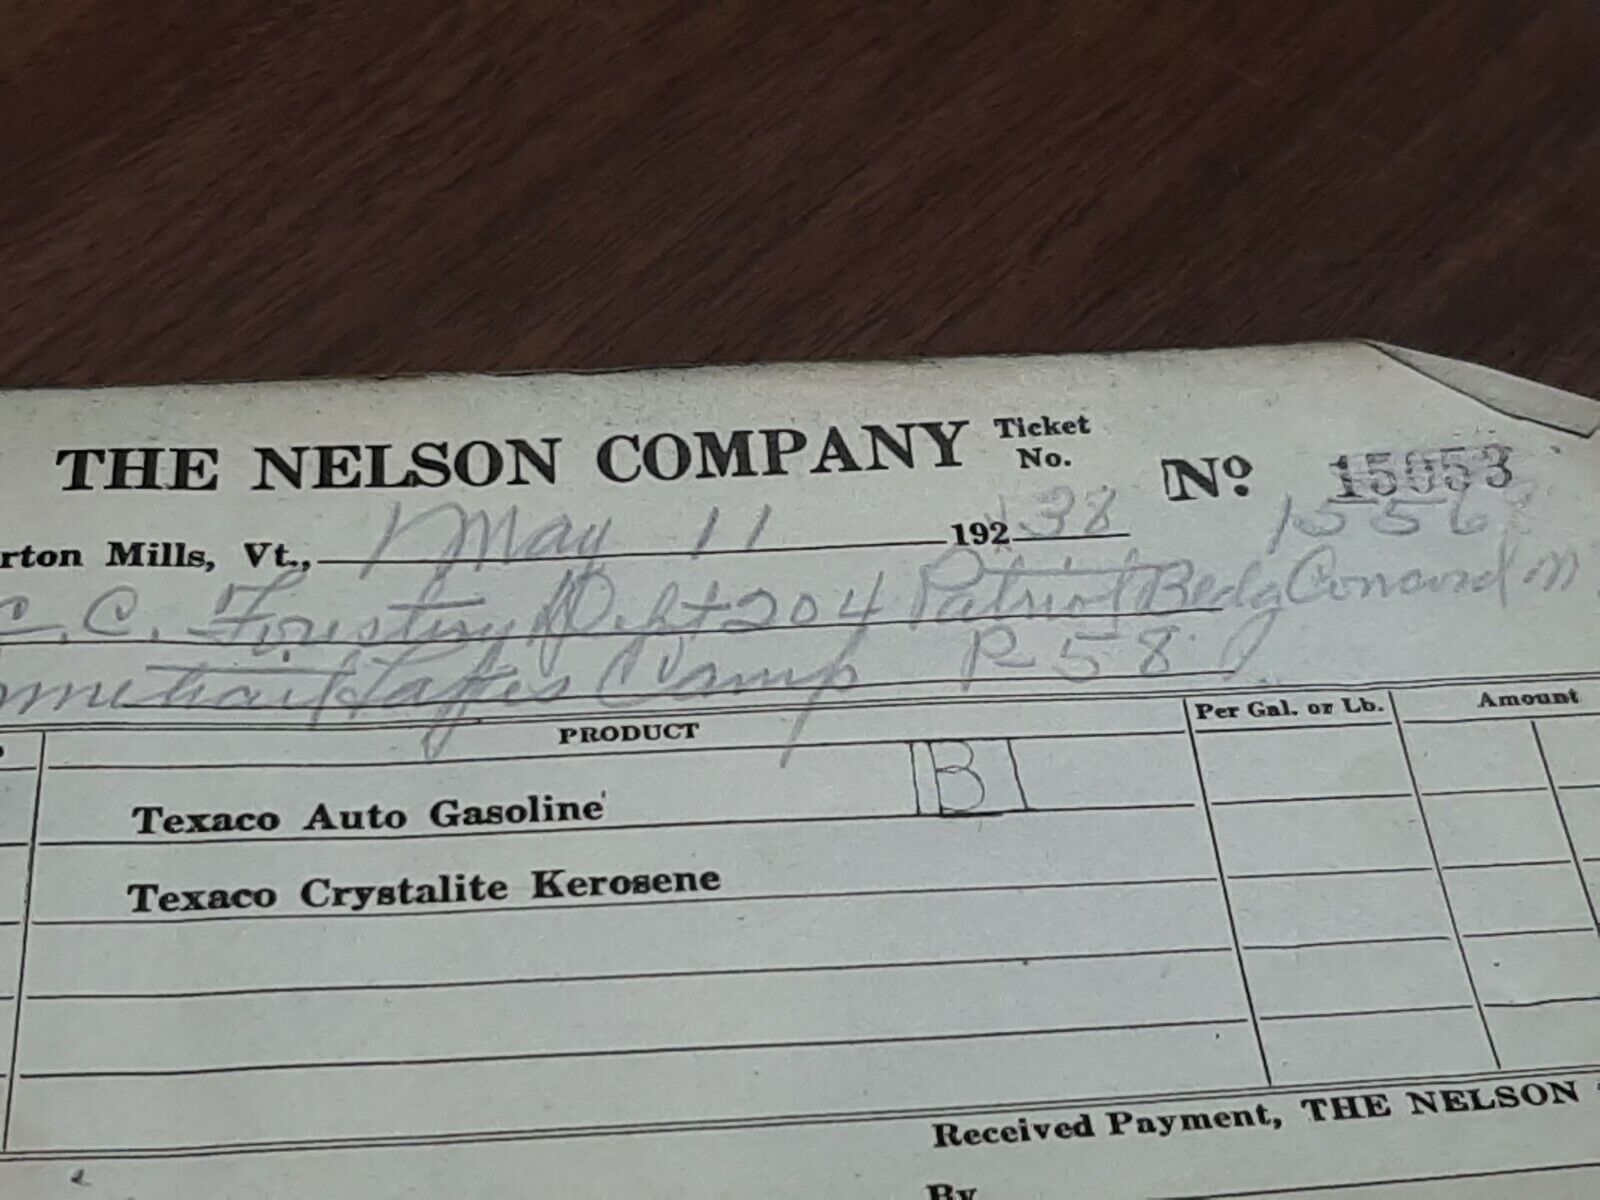 THE NELSON COMPANY Ticket No. Nº 15053
rton Mills, Vt., May 11 192 38 1556
C. C. Forestry Dept 204 Patriot Bedg Concord n
Camp R 58
PRODUCT Per Gal. or Lb. Amount
Texaco Auto Gasoline B
Texaco Crystalite Kerosene
Received Payment, THE NELSON
By